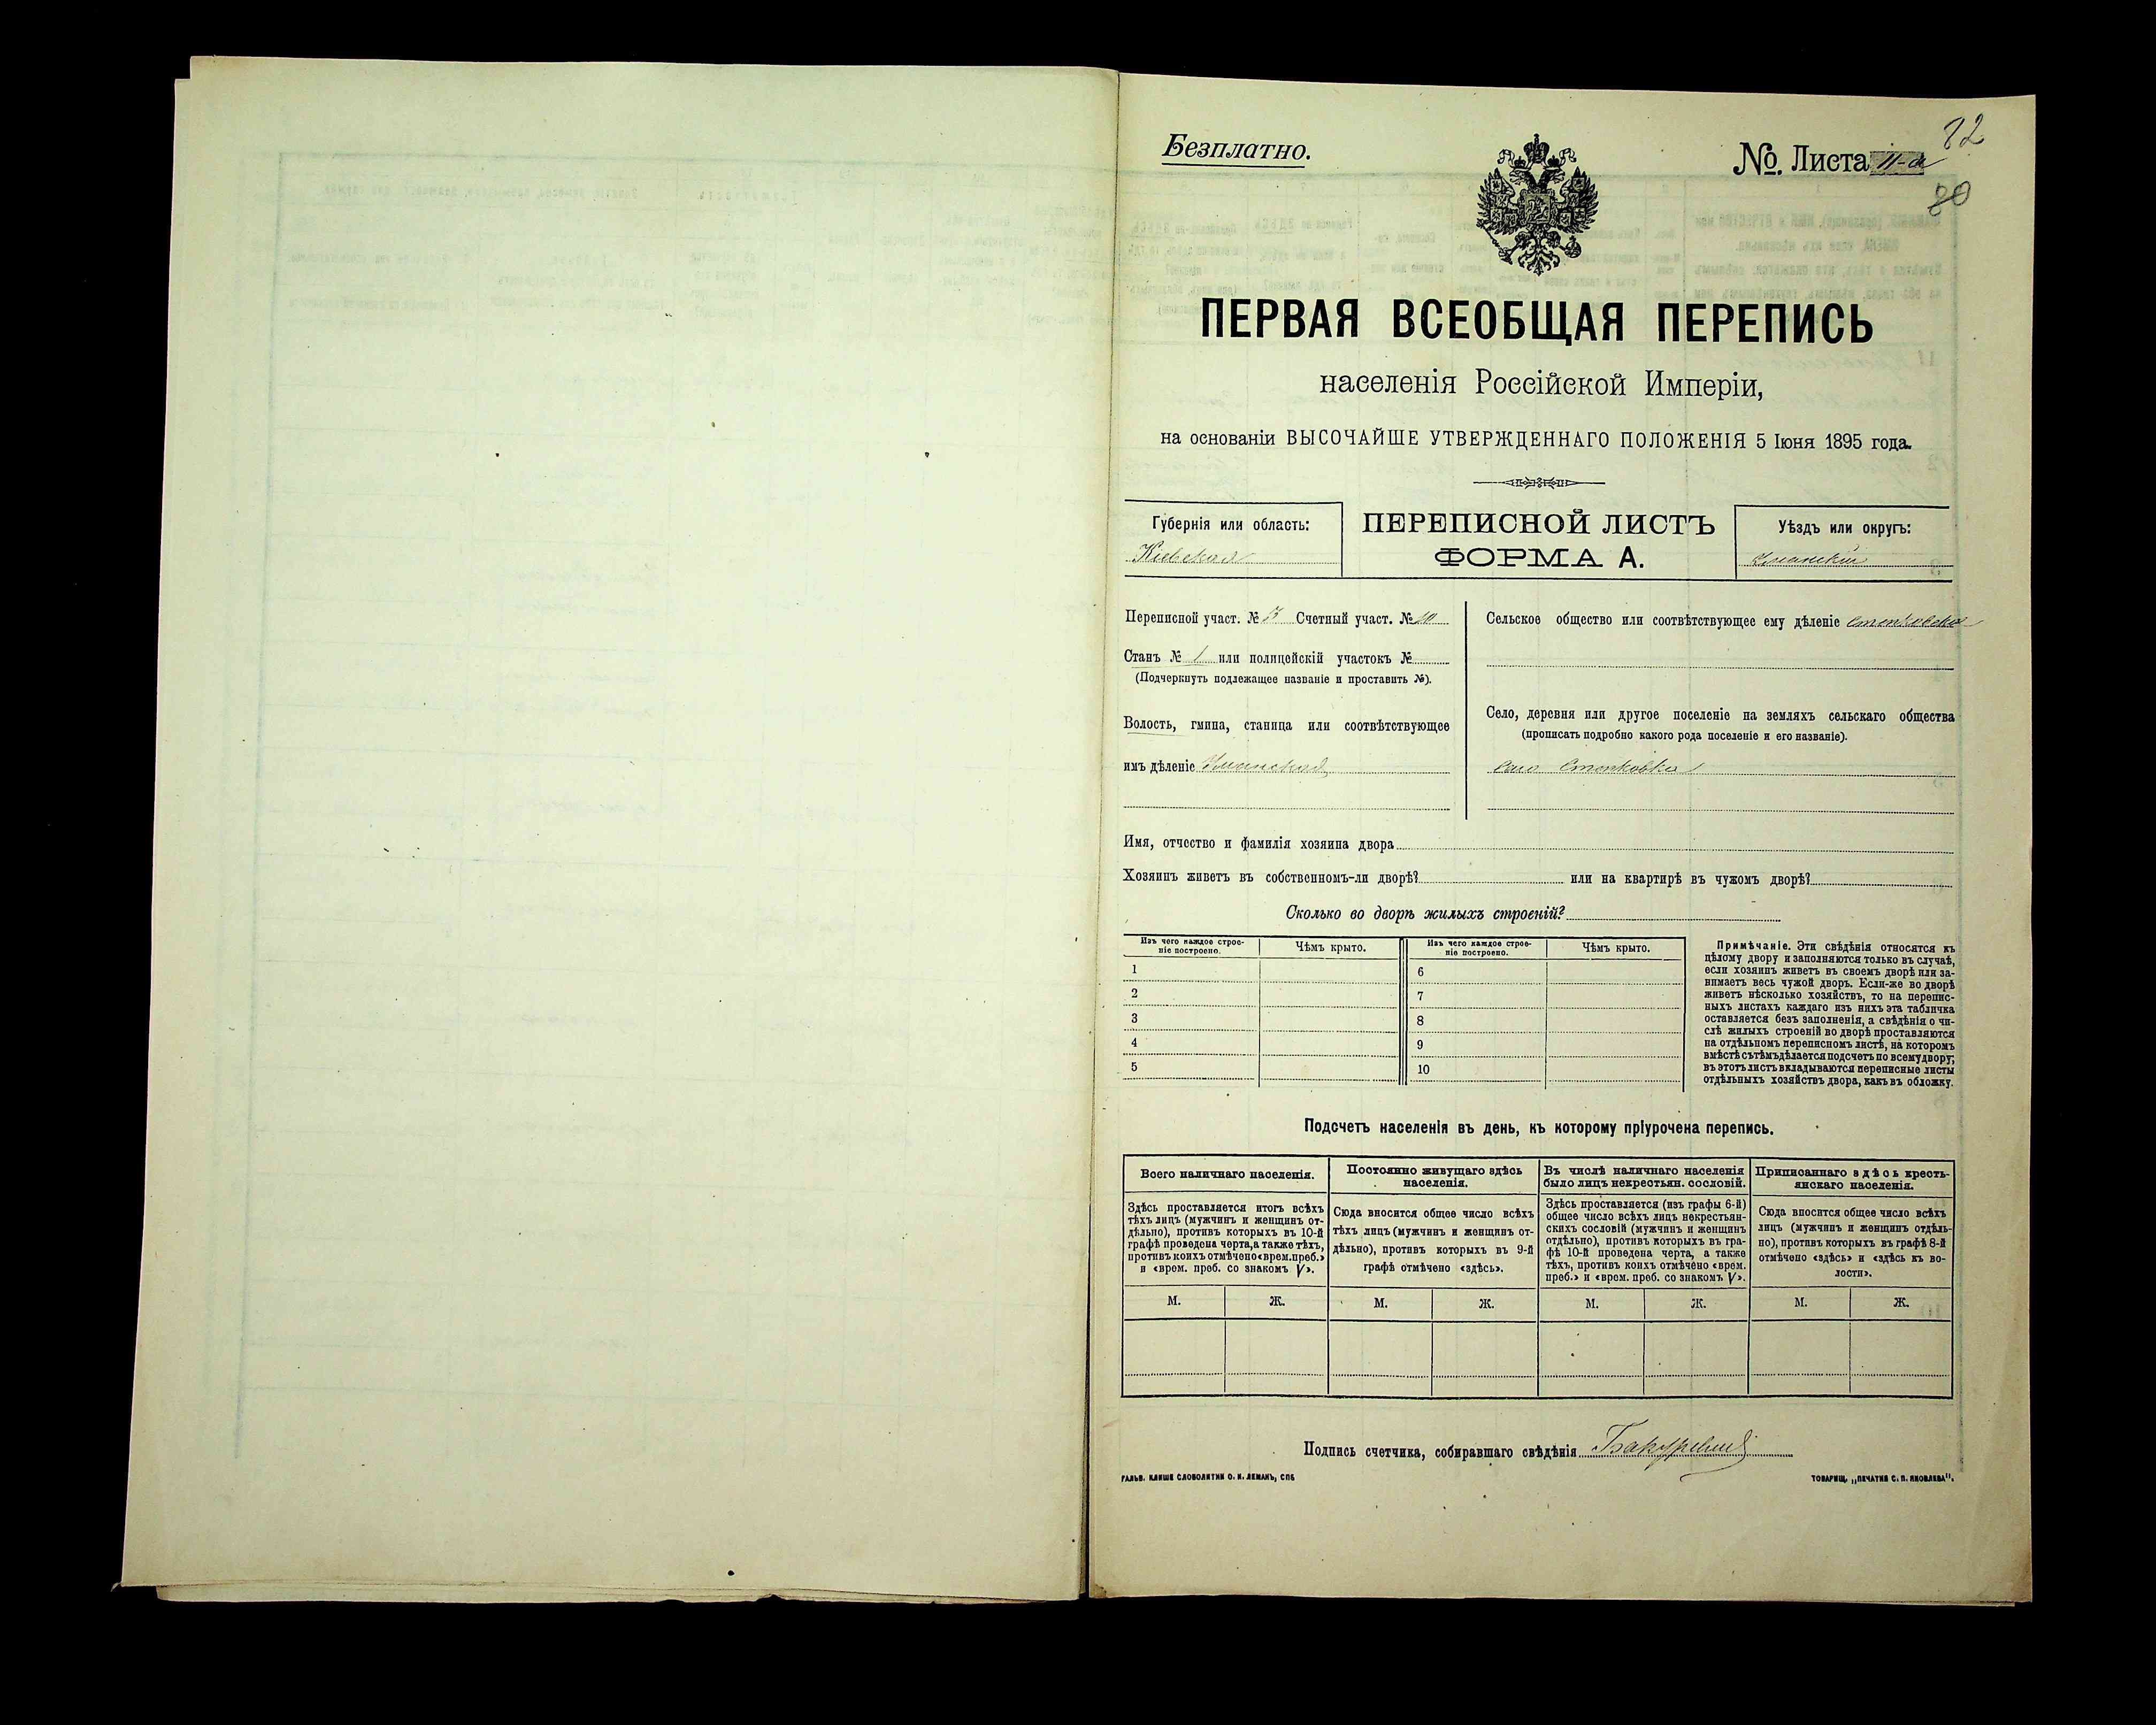 Безплатно.
№. Листа 11-а
82
80
ПЕРВАЯ ВСЕОБЩАЯ ПЕРЕПИСЬ
населенія Россійской Имперіи,
на основаніи ВЫСОЧАЙШЕ УТВЕРЖДЕННАГО ПОЛОЖЕНІЯ 5 Іюня 1895 года.
Губернія или область:
Кіевская
ПЕРЕПИСНОЙ ЛИСТЪ
ФОРМА А.
Уѣздъ или округъ:
Уманскій
Переписной участ. № 3 Счетный участ. № 10
Станъ № 1 или полицейскій участокъ №
(Подчеркнуть подлежащее названіе и проставить №).
Волость, гмина, станица или соотвѣтствующее
имъ дѣленіе Уманская
Сельское общество или соотвѣтствующее ему дѣленіе
Село, деревня или другое поселеніе на земляхъ сельскаго общества
(прописать подробно какого рода поселеніе и его названіе).
село Степковка
Имя, отчество и фамилія хозяина двора
Хозяинъ живетъ въ собственномъ-ли дворѣ? или на квартирѣ въ чужомъ дворѣ?
Сколько во дворѣ жилыхъ строеній?
Изъ чего каждое строе-
ніе построено.
Чѣмъ крыто.
1
2
3
4
5
Изъ чего каждое строе-
ніе построено.
Чѣмъ крыто.
6
7
8
9
10
Примѣчаніе. Эти свѣдѣнія относятся къ
цѣлому двору и заполняются только въ случаѣ,
если хозяинъ живетъ въ своемъ дворѣ или за-
нимаетъ весь чужой дворъ. Если-же во дворѣ
живетъ нѣсколько хозяйствъ, то на перепис-
ныхъ листахъ каждаго изъ нихъ эта табличка
оставляется безъ заполненія, а свѣдѣнія о чи-
слѣ жилыхъ строеній во дворѣ проставляются
на отдѣльномъ переписномъ листѣ, на которомъ
вмѣстѣ съ тѣмъ дѣлается подсчетъ по всему двору;
въ этотъ листъ вкладываются переписные листы
отдѣльныхъ хозяйствъ двора, какъ въ обложку.
Подсчетъ населенія въ день, къ которому пріурочена перепись.
Всего наличнаго населенія.
Здѣсь проставляется итогъ всѣхъ
тѣхъ лицъ (мужчинъ и женщинъ от-
дѣльно), противъ которыхъ въ 10-й
графѣ проведена черта, а также тѣхъ,
противъ коихъ отмѣчено «врем. преб.»
и «врем. преб. со знакомъ V».
М. Ж.
Постоянно живущаго здѣсь
населенія.
Сюда вносится общее число всѣхъ
тѣхъ лицъ (мужчинъ и женщинъ от-
дѣльно), противъ которыхъ въ 9-й
графѣ отмѣчено «здѣсь».
М. Ж.
Въ числѣ наличнаго населенія
было лицъ некрестьян. сословій.
Здѣсь проставляется (изъ графы 6-й)
общее число всѣхъ лицъ некрестьян-
скихъ сословій (мужчинъ и женщинъ
отдѣльно), противъ которыхъ въ гра-
фѣ 10-й проведена черта, а также
тѣхъ, противъ коихъ отмѣчено «врем.
преб.» и «врем. преб. со знакомъ V».
М. Ж.
Приписаннаго здѣсь кресть-
янскаго населенія.
Сюда вносится общее число всѣхъ
лицъ (мужчинъ и женщинъ отдѣль-
но), противъ которыхъ въ графѣ 8-й
отмѣчено «здѣсь» и «здѣсь къ во-
лости».
М. Ж.
Подпись счетчика, собиравшаго свѣдѣнія
ГАЛЬВ. КЛИШЕ СЛОВОЛИТНИ О. И. ЛЕМАНЪ, СПБ
ТОВАРИЩ. „ПЕЧАТНЯ С. П. ЯКОВЛЕВА".